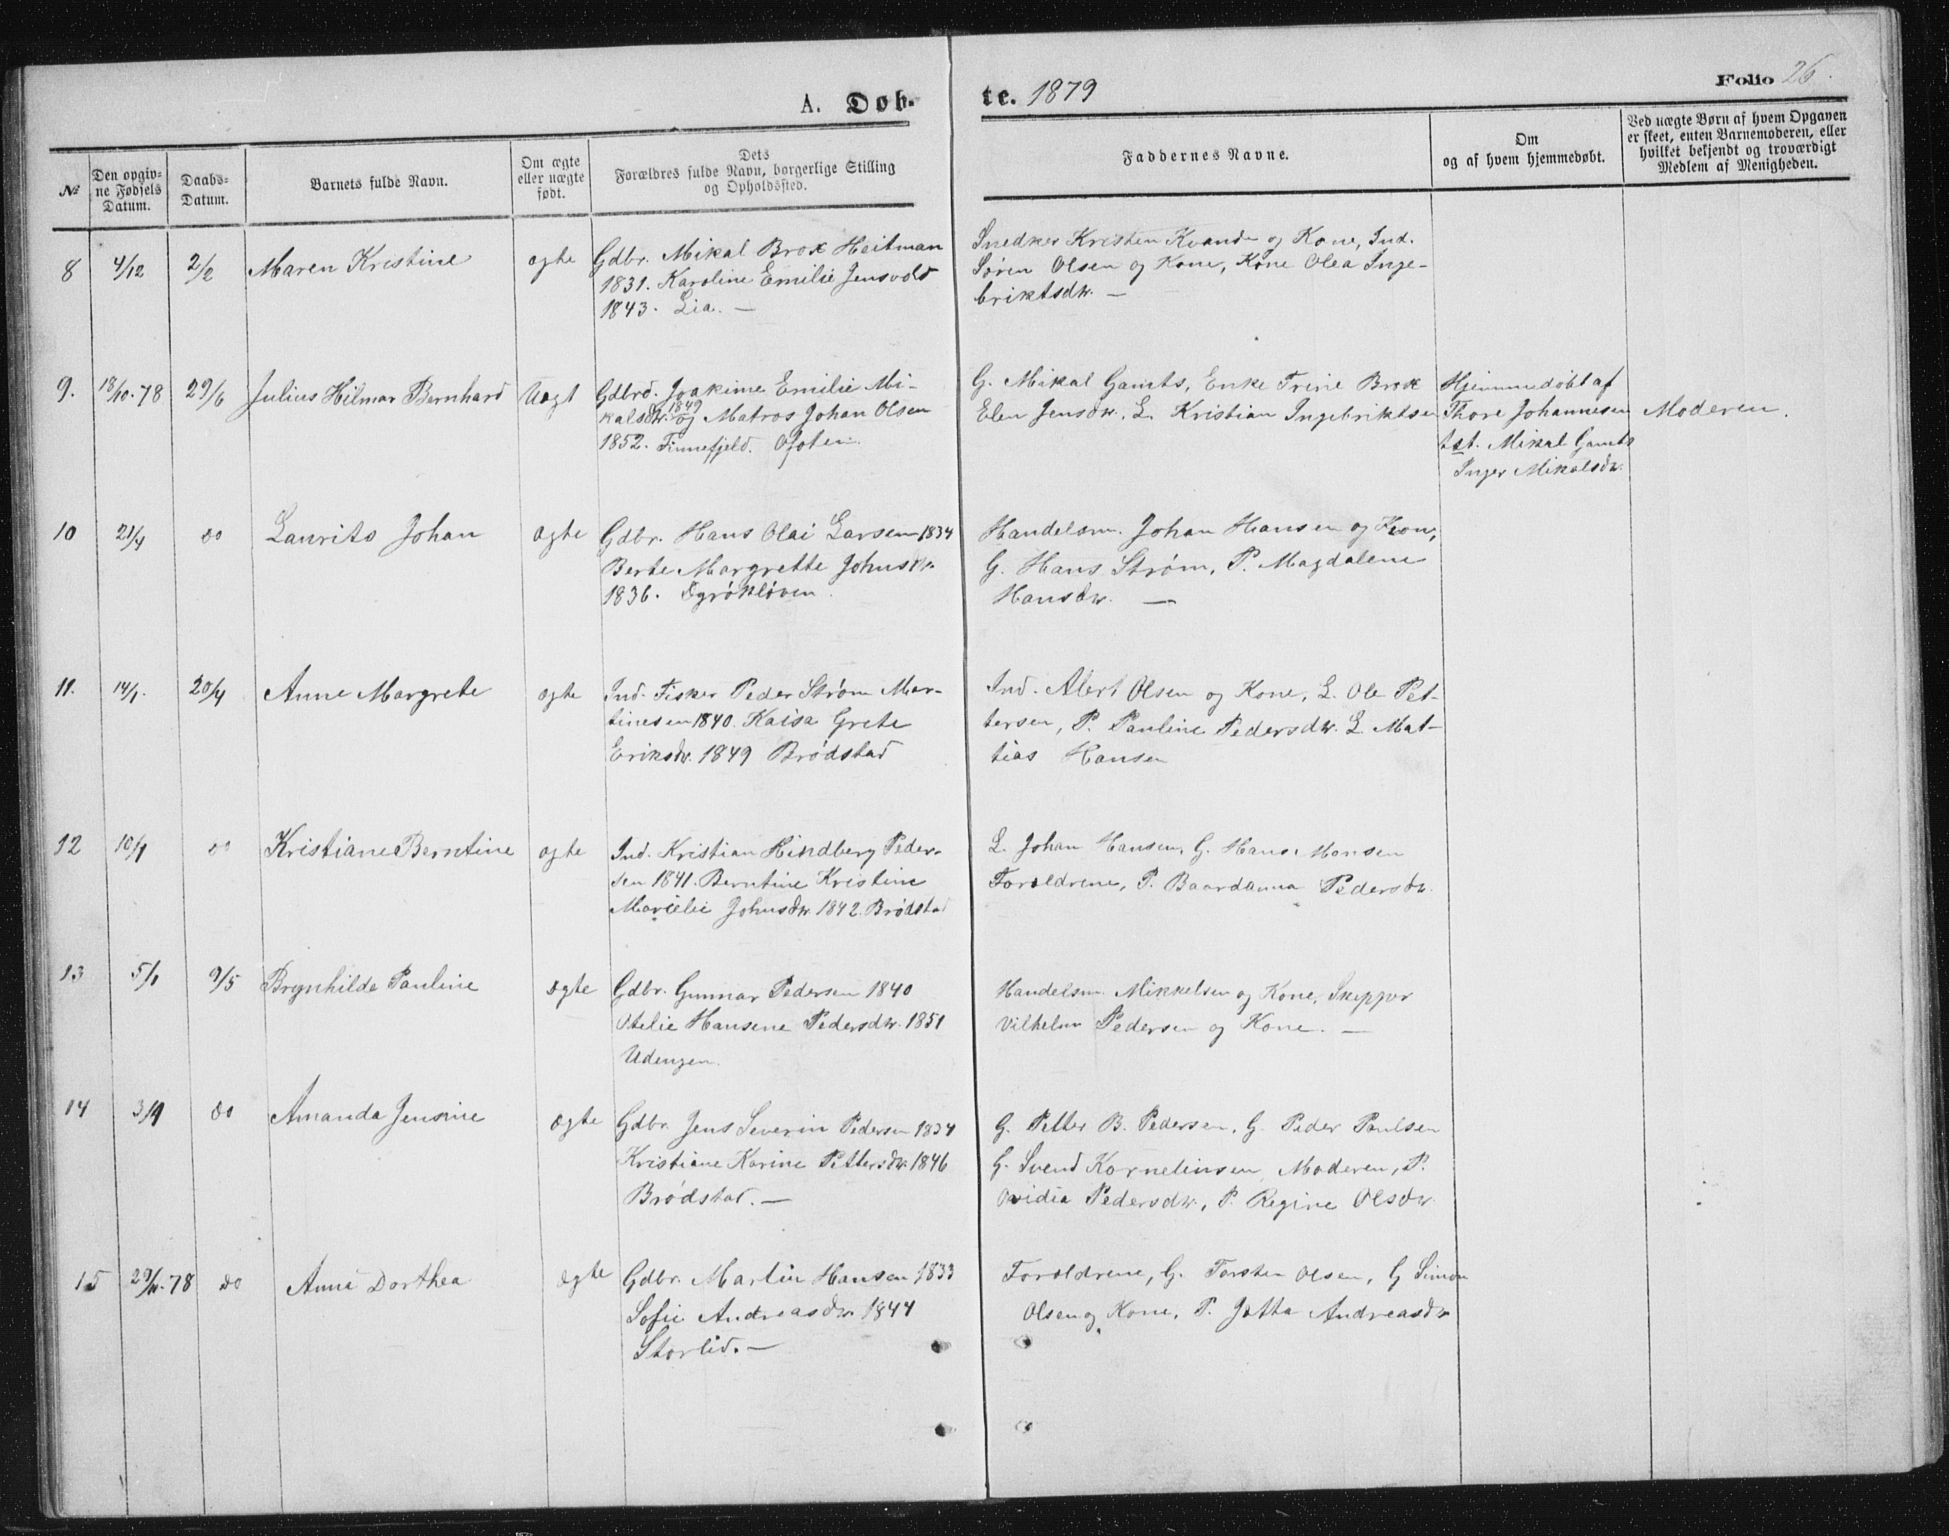 A. Døb-
te. 1879
Folio 26.
№
Den opgiv-
ne Fødsels
Datum.
Daabs-
Datum.
Barnets fulde Navn.
Om ægte
eller uægte
født.
Dets
Forældres fulde Navn, borgerlige Stilling
og Opholdssted.
Faddernes Navne.
Om
og af hvem hjemmedøbt.
Ved uægte Børn af hvem Opgaven
er skeet, enten Barnemoderen, eller
hvilket bekjendt og troværdigt
Medlem af Menigheden.
8 4/12 2/2 Maren Kristine ægte
Gdbr. Mikal Brox Heitman
1831. Karoline Emilie Jensvold
1843. Lia. —
Snedker Kristen Kvande og Kone, Ind.
Søren Olsen og Kone, Kone Olea Inge-
briktsdtr. —
9. 18/10.78 29/6 Julius Hilmar Bernhard Uægt
Gdbrd. Joakime Emilie Mi-
kalsdtr. 1849 og Matros Johan Olsen
1852. Finnefjeld. Ofoten.
G. Mikal Gamts, Enke Trine Brox
Elen Jensdtr. L. Kristian Ingebriktsen
Hjemmedøbt af
Thore Johannesen
tst. Mikal Gamts
Inger Mikalsdtr.
Moderen.
10 21/4 do Laurits Johan ægte
Gdbr. Hans Olai Larsen 1834
Berte Margrette Johnsdtr.
1836. Øgrøkløven.
Handelsm. Johan Hansen og Kone,
G. Hans Strøm, P. Magdalene
Hansdtr. —
11. 14/1. 20/4 Anne Margrete ægte
Ind. Fisker Peder Strøm Mar-
tinesen 1840. Kaisa Grete
Eriksdtr. 1849 Brødstad
Ind. Albert Olsen og Kone, L. Ole Pet-
tersen, P. Pauline Pedersdtr. L. Mat-
tias Hansen
12 10/1 do Kristiane Berntine ægte
Ind. Kristian Hindberg Peder-
sen 1841. Berntine Kristine
Marielie Johnsdtr. 1842. Brødstad
L. Johan Hansen, G. Hans Monsen
Forældrene, P. Baardanna Pedersdtr.
13 5/1 9/5 Brynhilde Pauline ægte
Gdbr. Gunnar Pedersen 1840
Otelie Hansene Pedersdtr. 1851
Udengen.
Handelsm. Mikkelsen og Kone, Skipper
Vilhelm Pedersen og Kone. —
14 3/4 do Amanda Jensine ægte
Gdbr. Jens Severin Pedersen 1834
Kristiane Karine Pettersdtr. 1846
Brødstad. —
G. Petter B. Pedersen, G. Peder Paulsen
G. Svend Korneliusen, Moderen, P.
Ovidia Pedersdtr., P. Regine Olsdtr.
15 29/11.78 do Anna Dorthea ægte
Gdbr. Martin Hansen 1833
Sofie Andreasdtr. 1844
Storlid. —
Forældrene, G. Torsten Olsen, G Simon
Olsen og Kone, P. Jatta Andreasdtr